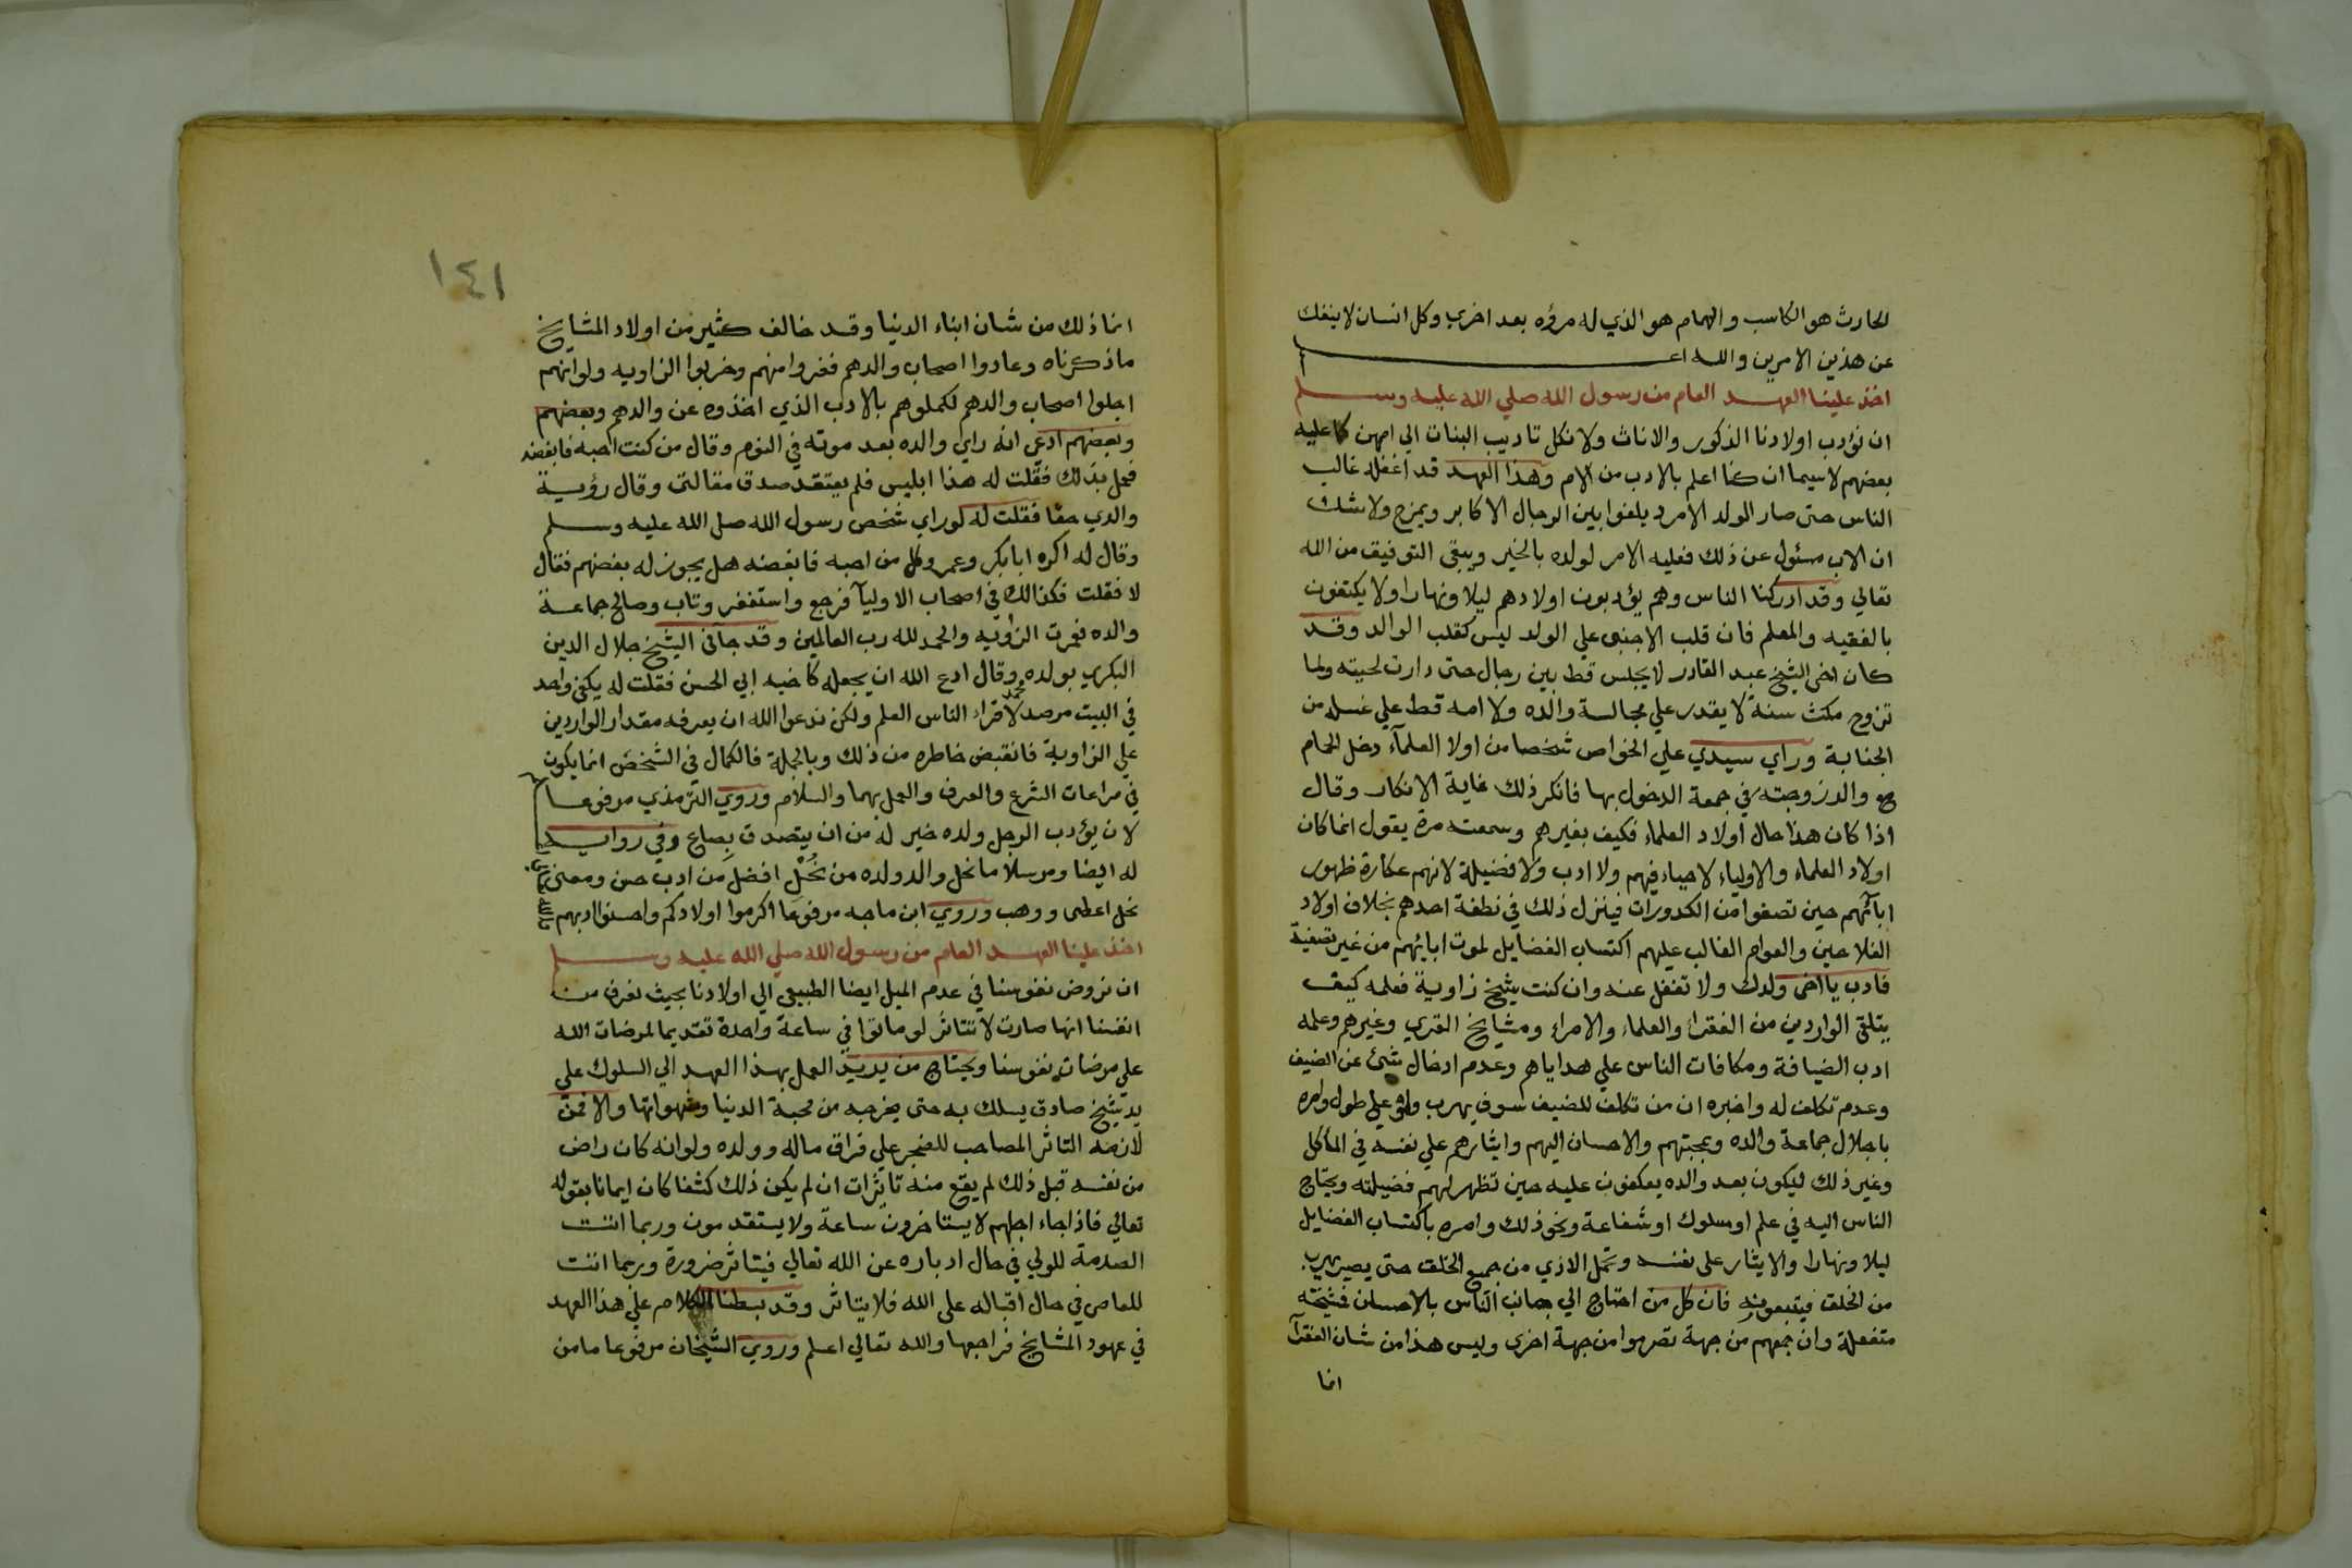 الحارث هو الكاسب والهمام هو الذي له مرؤه بعد اخري وكل انسان لا ينفك
عن هذين الامرين والله اعلم
اخذ علينا العهد العام من رسول الله صلي الله عليه وسلم
ان نؤدب اولادنا الذكور والاناث ولا نكل تاديب البنات الي امهن كما عليه
بعضهم لا سيما ان كنا اعلم بالادب من الام وهذا العهد قد اغفله غالب
الناس حتى صار الولد الامرد يلغوا بين الرجال الاكابر ويمزح ولا شك
ان الاب مسئول عن ذلك فعليه الامر لولده بالخير ويبقى التوفيق من الله
تعالي وقد ادركنا الناس وهم يؤدبون اولادهم ليلا ونهارا ولا يكتفون
بالفقيه والمعلم فان قلب الاجنبي علي الولد ليس كقلب الوالد وقد
كان اخي الشيخ عبد القادر لا يجلس قط بين رجال حتى دارت لحيته ولما
تزوج مكث سنة لا يقدر علي مجالسة والده ولا امه قط علي غسله من
الجنابة وراي سيدي علي الخواص شخصا من اولا العلمآء دخل الحمام
هو والد زوجته في جمعة الدخول بها فانكر ذلك غاية الانكار وقال
اذا كان هذا حال اولاد العلماء فكيف بغيرهم وسمعته مرة يقول انما كان
اولاد العلماء والاولياء لا حياء فيهم ولا ادب ولا فضيلة لانهم عكارة ظهور
ابآئهم حين تصفوا من الكدورات فينزل ذلك في نطفة احدهم بخلاف اولاد
الفلاحين والعوام الغالب عليهم اكتساب الفضايل لموت ابائهم من غير تصفية
فادب يا اخى ولدك ولا تغفل عنه وان كنت شيخ زاوية فعلمه كيف
يتلقي الواردين من الفقرا والعلماء والامراء ومشايخ القري وغيرهم وعلمه
ادب الضيافة ومكافات الناس علي هداياهم وعدم ادخال شئ عن الضيف
وعدم تكلف له واخبره ان من تكلف للضيف سوف يهرب ولو علي طول وامره
باجلال جماعة والده ومحبتهم والاحسان اليهم وايثارهم علي نفسه في المأكل
وغير ذلك ليكون بعد والده يعكفون عليه حين تظهر لهم فضيلته ويحتاج
الناس اليه في علم او سلوك او شفاعة ونحو ذلك وامره باكتساب الفضايل
ليلا ونهارا والايثار على نفسه وتحمل الاذي من جميع الخلق حتى يصير يهرب
من الخلق فيتبعونه فان كل من احتاج الي جهات الناس بالاحسان فشيخته
متفعلة وان جمعهم من جهة تصرموا من جهة اخرى وليس هذا من شان الفقرآ
انما
١٤١
انما ذلك من شان ابناء الدنيا وقد خالف كثير من اولاد المشايخ
ما ذكرناه وعادوا اصحاب والدهم فنفروا منهم وخربوا الزاويه ولو انهم
اجلوا اصحاب والدهم لكملوهم بالادب الذي اخذوه عن والدهم وبعضهم
وبعضهم ادعي انه راي والده بعد موته في النوم وقال من كنت احبه فابغضه
فعمل بذلك فقلت له هذا ابليس فلم يعتقد صدق مقالتى وقال رؤية
والدي حقا فقلت له لو راي شخص رسول الله صلى الله عليه وسلم
وقال له اكره ابا بكر وعمر وكل من احبه فابغضه هل يجوز له بغضهم فقال
لا فقلت فكذالك في اصحاب الاوليآ فرجع واستغفر وتاب وصالح جماعة
والده فعمرت الزاويه والحمد لله رب العالمين وقد جآنى الشيخ جلال الدين
البكري بولده محمد وقال ادع الله ان يجعله كاخيه ابي الحسن فقلت له يكفى واحد
في البيت مرصد لاقراء الناس العلم ولكن ندعوا الله ان يعرفه مقدار الواردين
علي الزاوية فانقبض خاطره من ذلك وبالجملة فالكمال في الشخص انما يكون
في مراعات الشرع والعرف والعمل بهما والسلام وروي الترمذي مرفوعا
لان يؤدب الرجل ولده خير له من ان يتصدق بصاع وفي رواية
له ايضا ومرسلا ما نحل والد ولده من نُحْلٍ افضل من ادب حسن ومعنى
نحل اعطى ووهب وروي ابن ماجه مرفوعا اكرموا اولادكم واحسنوا ادبهم
اخذ علينا العهد العام من رسول الله صلي الله عليه وسلم
ان نروض نفوسنا في عدم الميل ايضا الطبيعي الي اولادنا بحيث نعرف من
انفسنا انها صارت لا تتاثر لو ماتوا في ساعة واحدة تقديما لمرضات الله
على مرضات نفوسنا ويحتاج من يريد العمل بهذا العهد الي السلوك علي
يد شيخ صادق يسلك به حتى يخرجه من محبة الدنيا وشهواتها والا فمن
لازمه التاثر المصاحب للضجر علي فراق ماله وولده ولو انه كان راض
من نفسه قبل ذلك لم يقع منه تاثرات ان لم يكن ذلك كشفا كان ايمانا بقوله
تعالي فاذا جاء اجلهم لا يستاخرون ساعة ولا يستقدمون وربما اتت
الصدمة للولي في حال ادباره عن الله تعالي فيتاثر ضرورة وربما اتت
للعاصي في حال اقباله على الله فلا يتاثر وقد بسطنا الكلام علي هذا العهد
في عهود المشايخ فراجعها والله تعالي اعلم وروي الشيخان مرفوعا ما من